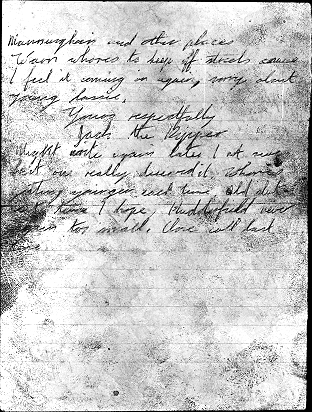 Manningham and other places
Warn whores to keep off streets cause
I feel it coming on again, sorry about
young lassie.
Yours respectfully
Jack the Ripper
Might write again later I not sure
last one really deserved it. Whores
getting younger each time. Old slut
next time I hope, Huddersfield never
again too small. Close call last
one